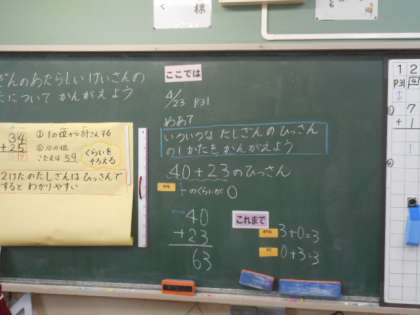 様
ざんのあたらしいけいさんの
についてかんがえよう
34
+25
①1の位から計さんする
②十の位
こたえは59
くらいをそろえる
2けたのたしざんはひっさんで
するとわかりやすい
ここでは
4/23 P31
めあて
いろいろなたしざんのひっさん
のしかたをかんがえよう
40+23のひっさん
一のくらいが0
40
+23
63
これまで
3+0=3
0+3=3
1 2
P31 4
0 7
+ 1